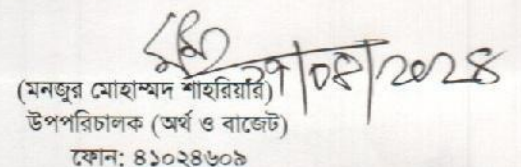 |০৪|২০২৪
(মনজুর মোহাম্মদ শাহরিয়ার)
উপপরিচালক (অর্থ ও বাজেট)
ফোন: ৪১০২৪৬০৯